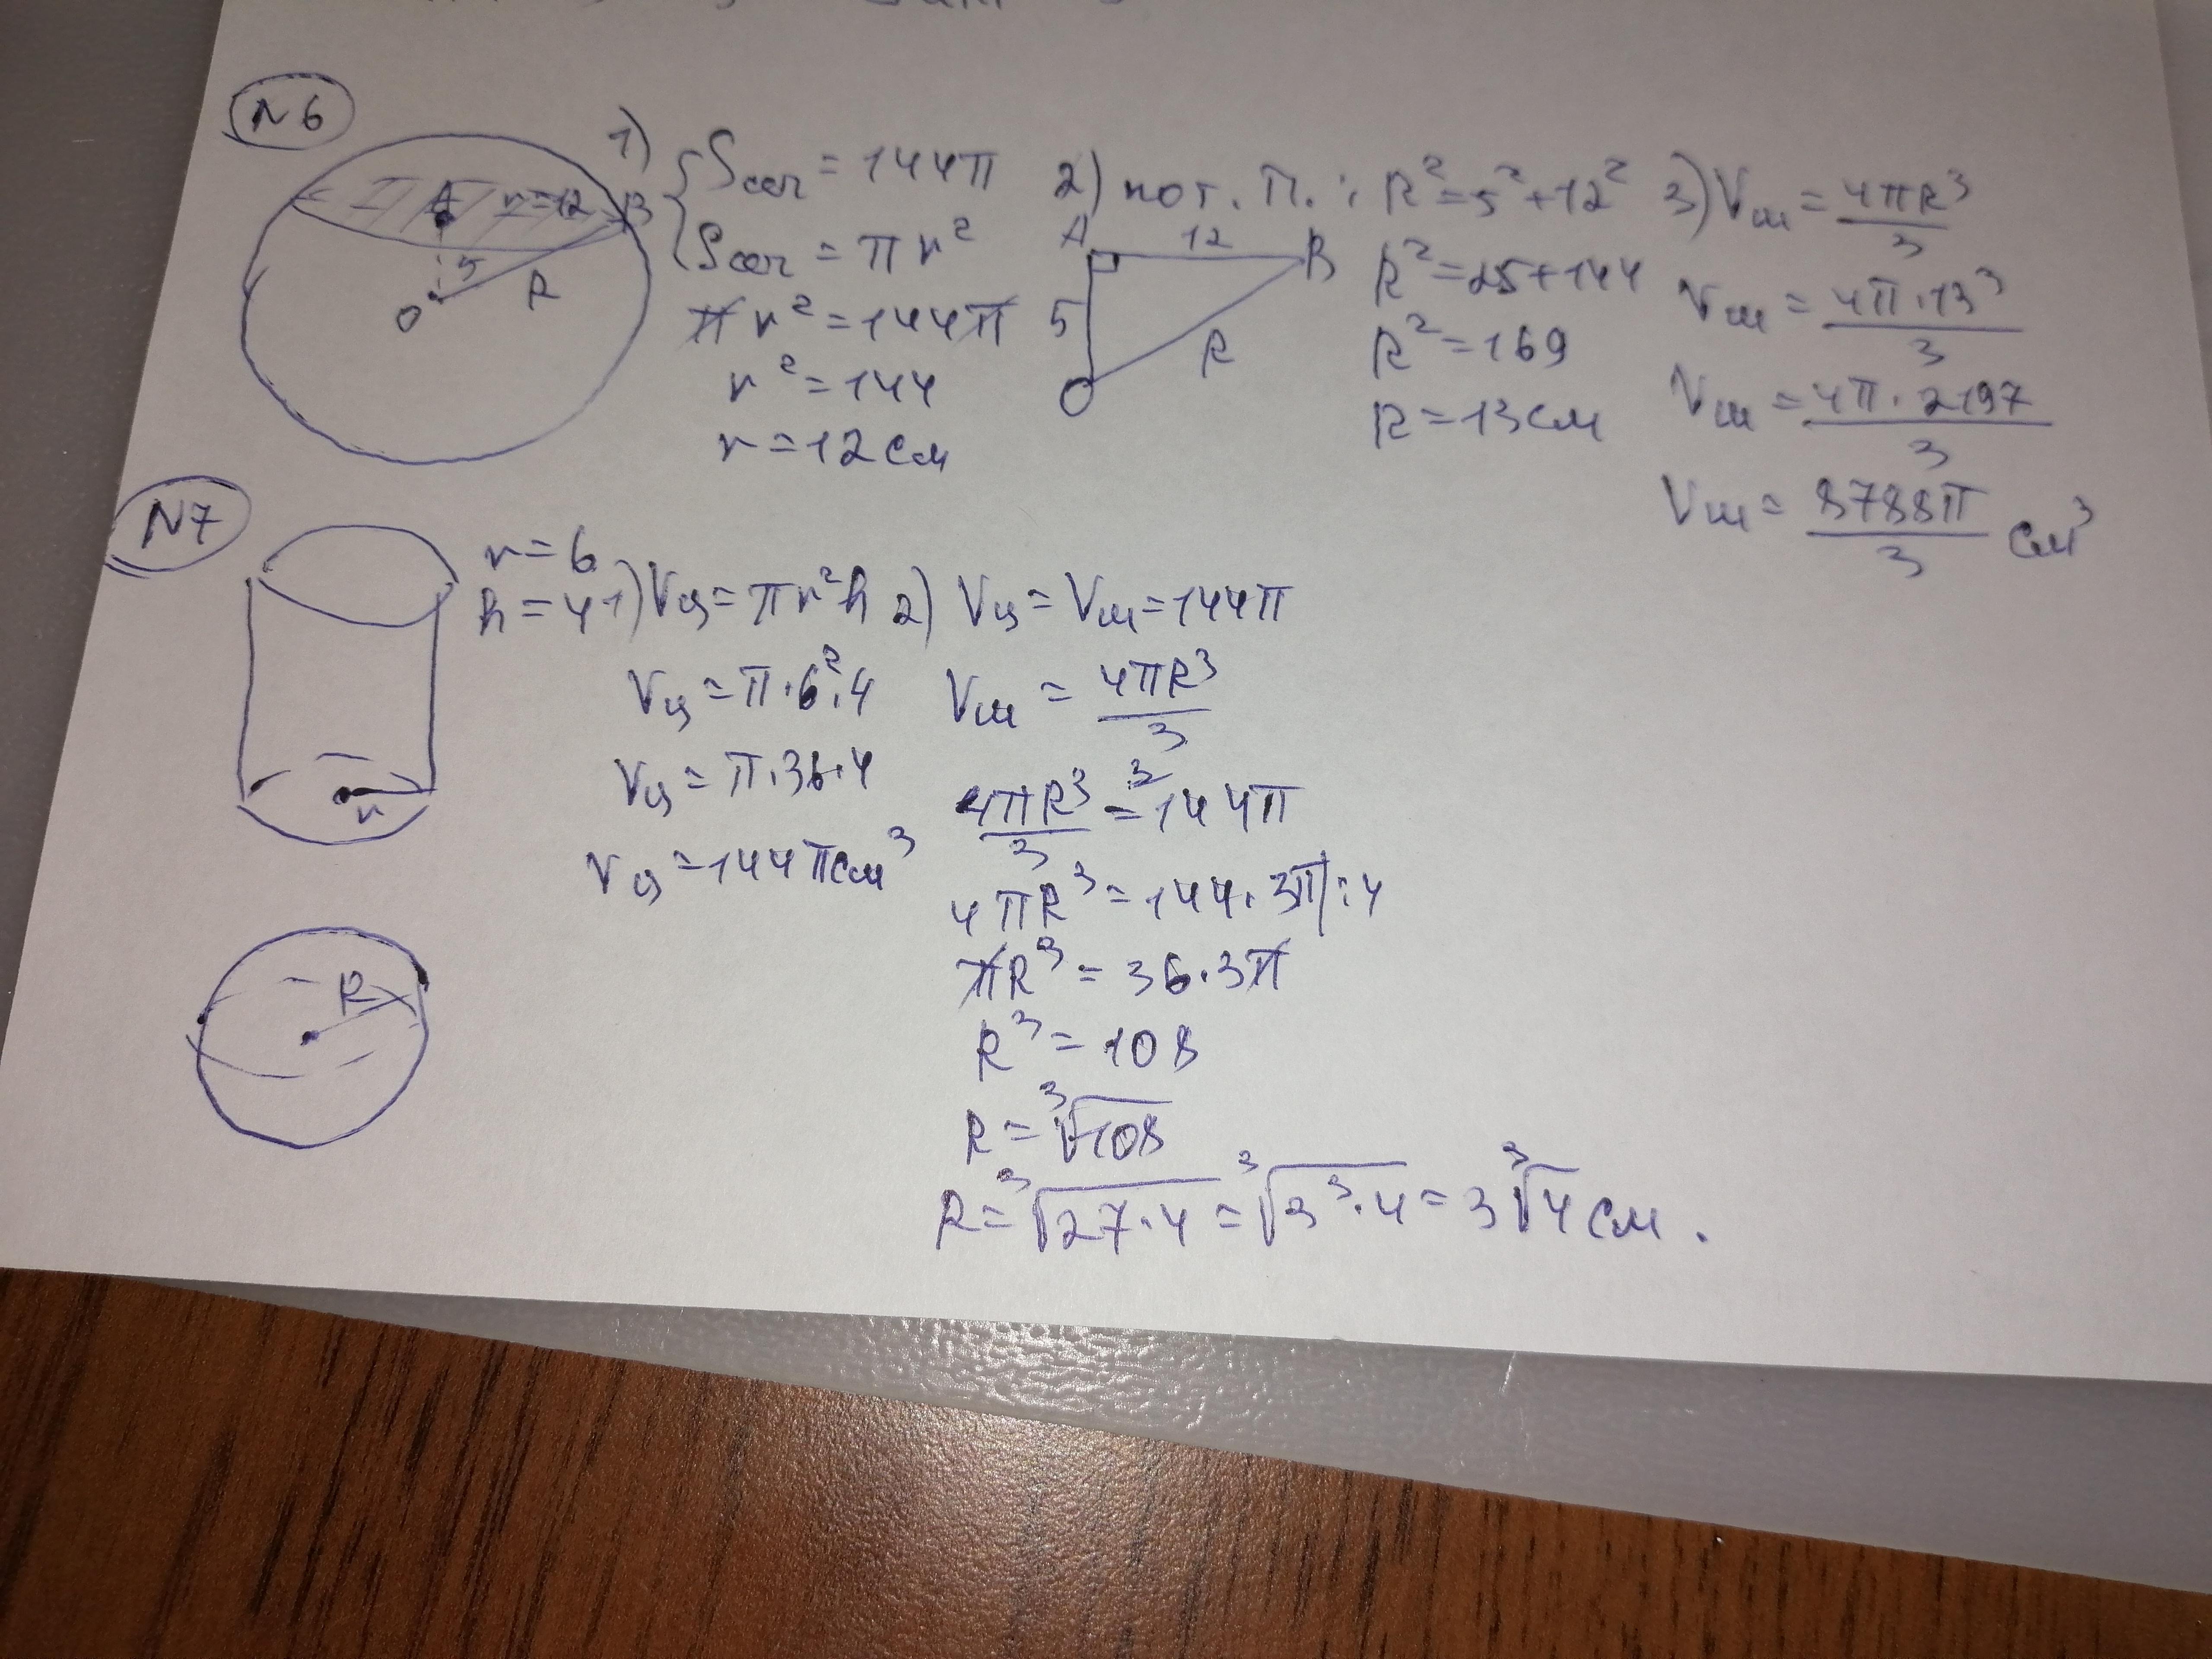 N6
1) Sсеч = 144π
Sсеч = πr²
πr² = 144π
r² = 144
r = 12 см
A r=12 B
5
O R
2) по т. П.: R² = 5² + 12²
A 12 B
5
R
O
R² = 25 + 144
R² = 169
R = 13 см
3) Vш = 4πR³/3
Vш = 4π·13³/3
Vш = 4π·2197/3
Vш = 8788π/3 см³
N7
r = 6
h = 4
r
R
1) Vц = πr²h
Vц = π·6²·4
Vц = π·36·4
Vц = 144π см³
2) Vц = Vш = 144π
Vш = 4πR³/3
4πR³/3 = ³144π
4πR³ = 144·3π |:4
πR³ = 36·3π
R³ = 108
R = ³√108
R = ³√27·4 = ³√3³·4 = 3³√4 см.